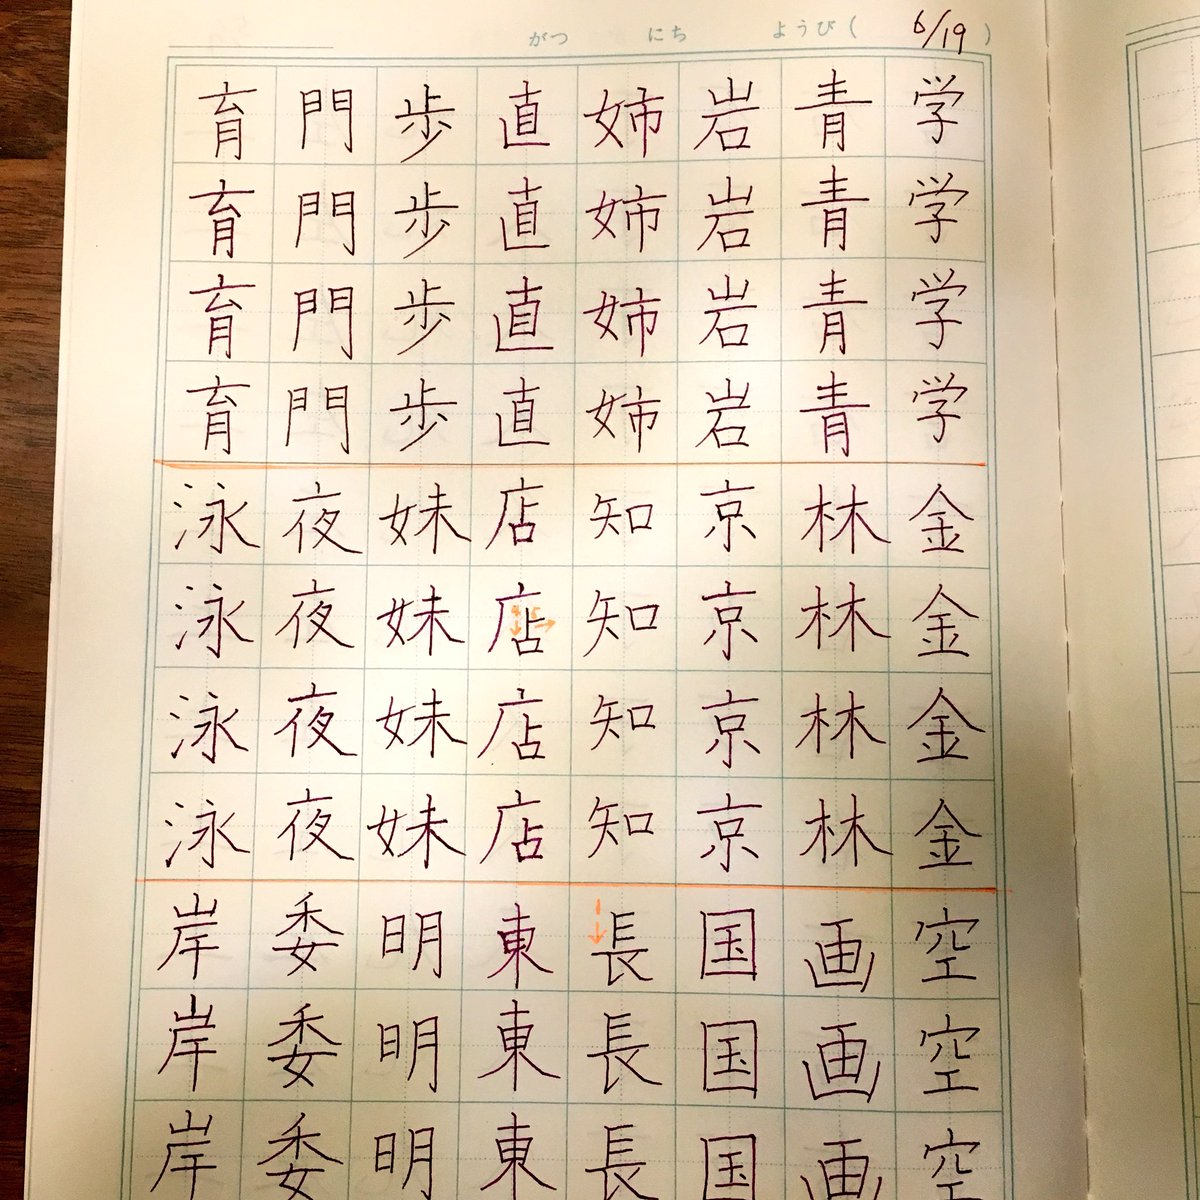 がつ にち ようび( 6/19 )
学学学学金金金金空空空
青青青青林林林林画画画
岩岩岩岩京京京京国国国
姉姉姉姉知知知知長長長
直直直直店店店店東東東
歩歩歩歩妹妹妹妹明明明
門門門門夜夜夜夜委委委
育育育育泳泳泳泳岸岸岸